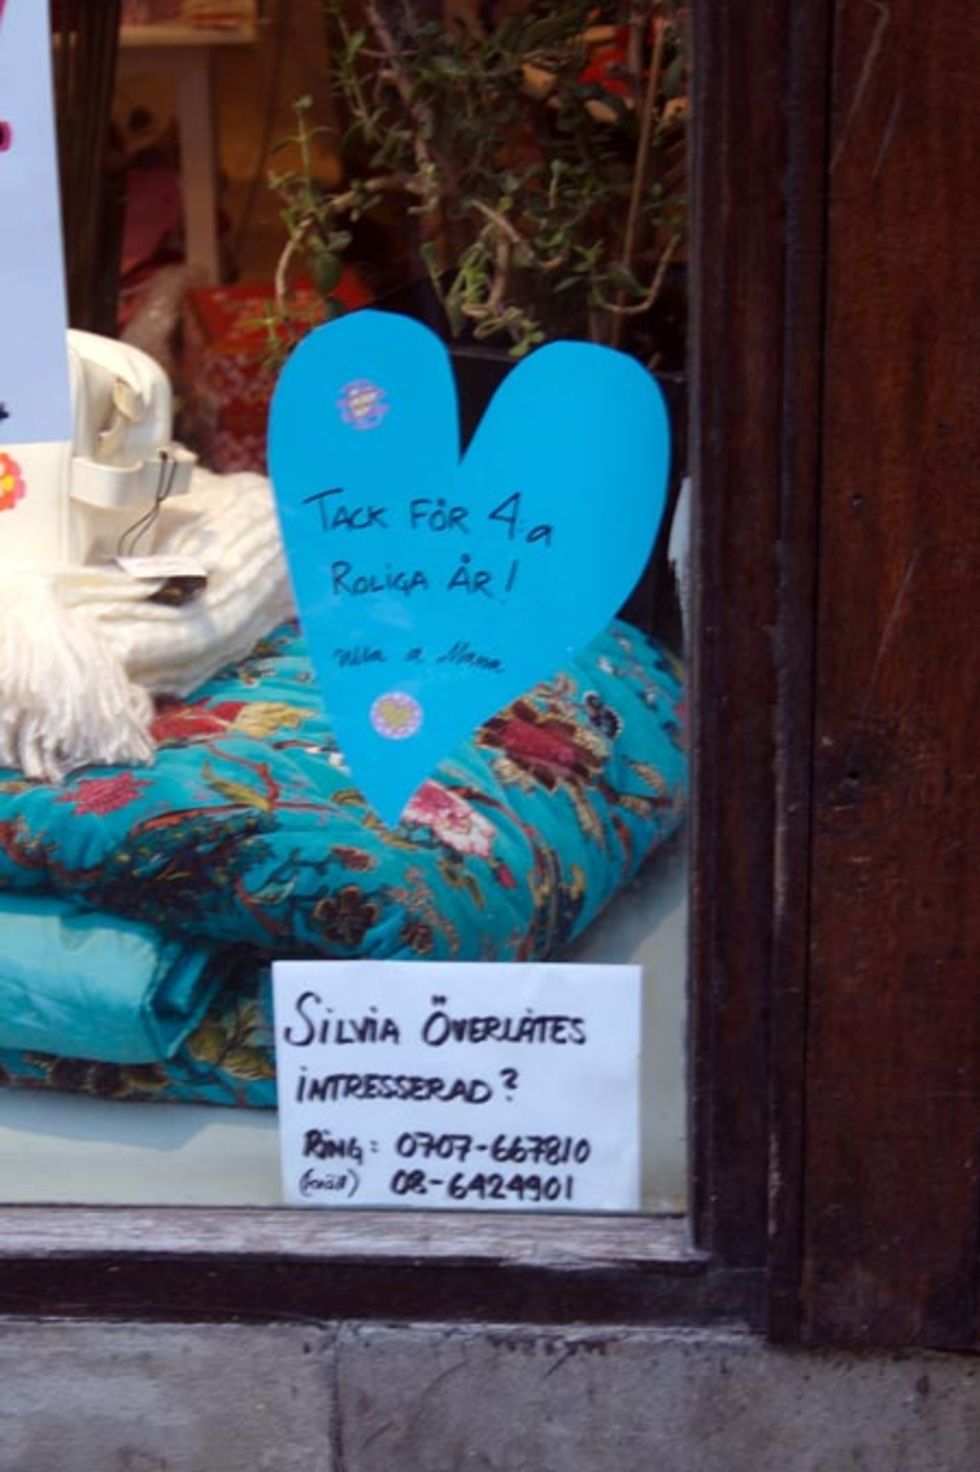 TACK FÖR 4.a
ROLIGA ÅR!
a
SILVIA ÖVERLÅTES
INTRESSERAD?
RING: 0707-667810
(kväll) 08-6424901